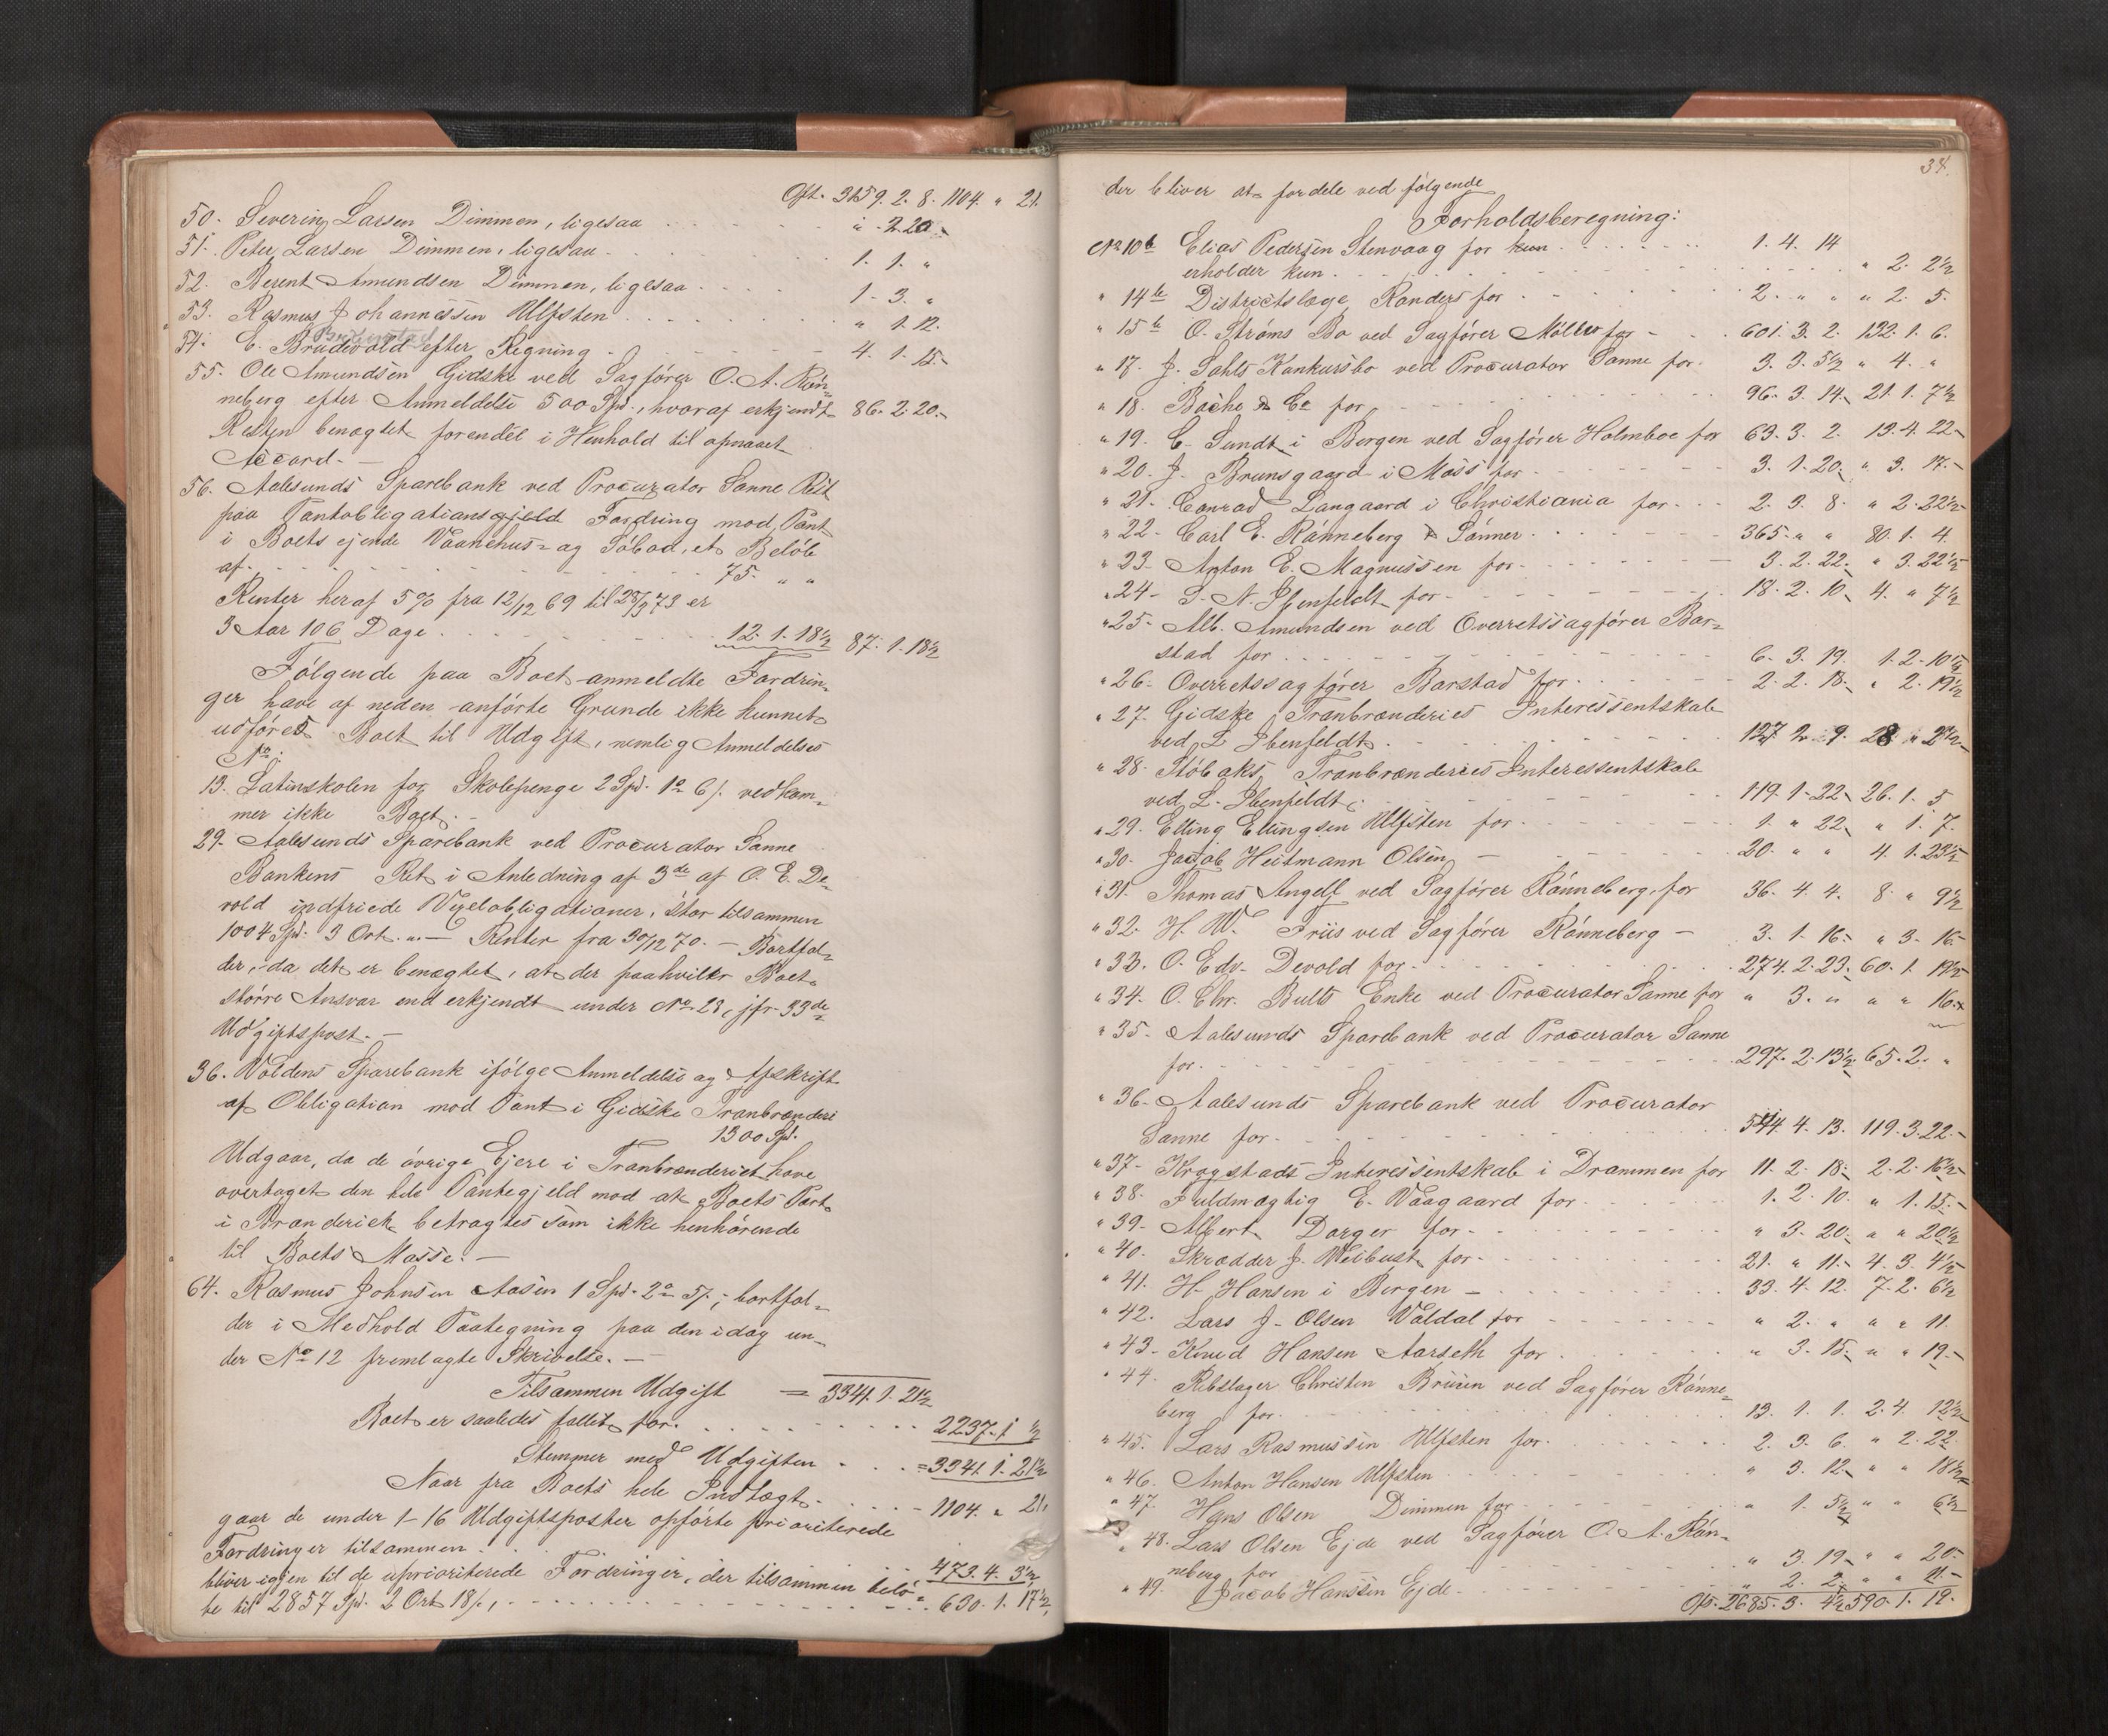 Oft. 3159. 2. 8. 1104. " 21.
50. Severin Larsen Dimmen, ligesaa . . . " 2. 20.
51. Peter Larsen Dimmen, ligesaa . . . 1. 1. "
52. Berent Amundsen Dimmen, ligesaa . . . 1. 3. "
53. Rasmus Johannessen Ulfsten . . . " 1. 12.
54. E. Brudevold efter Regning . . . 4. 1. 15.
55. Ole Amundsen Gidske ved Sagfører O. A. Røn-
neberg efter Anmeldelse 500 Spd., hvoraf erkjendt 86. 2. 20.
Resten benægtet forendel i Henhold til opnaaet
Accord. —
56. Aalesunds Sparebank ved Procurator Sanne Rest
paa Pantobligationsgjeld Fordring mod Pant
i Boets ejende Vaanehus- og Søbod, et Beløb
af . . . 75. " "
Renter heraf 5% fra 12/12 69 til 28/3 73 er
3 Aar 106 Dage . . . 12. 1. 18½ 87. 1. 18½
Følgende paa Boet anmeldte Fordrin-
ger have af neden anførte Grunde ikke kunnet
udføres Boet til Udgift, nemlig Anmeldelses
No:
13. Latinskolen for Skolepenge 2 Spd. 1 o 6 s. vedkom-
mer ikke Boet. —
29. Aalesunds Sparebank ved Procurator Sanne
Bankens Ret i Anledning af 3de af O. E. De-
vold indfriede Vexelobligationer, stor tilsammen
1004 Spd. 3 Ort. " — Renter fra 30/12 70. — Bortfal-
der, da det er benægtet, at der paahviler Boet
større Ansvar end erkjendt under No 23, jfr. 33de
Udgiftspost. —
36. Voldens Sparebank ifølge Anmeldelse og Afskrift
af Obligation mod Pant i Gidske Tranbrænderi
1300 Spd.
Udgaar, da de øvrige Ejere i Tranbrænderiet have
overtaget den hele Pantegjeld mod at Boets Part
i Brænderiet betragtes som ikke henhørende
til Boets Masse. —
64. Rasmus Johnsen Aasen 1 Spd. 2 o 5 s.; bortfal-
der i Medhold Paategning paa den idag un-
der No 12 fremlagte Skrivelse. —
Tilsammen Udgift = 3341. 1. 21½
Boet er saaledes fallit for . . . 2237. 1 ½
Stemmer med Udgiften . . . = 3341. 1. 21½
Naar fra Boets hele Indtægt . . . 1104. " 21.
gaar de under 1-16 Udgiftsposter opførte prioriterede
Fordringer tilsammen . . . 473. 4. 3½
bliver igjen til de uprioriterede Fordringer, der tilsammen belø-
be til 2857 Spd. 2 Ort 18 s., . . . 630. 1. 17½
34.
der bliver at fordele ved følgende
Forholdsberegning:
No 10b Elias Pedersen Stenvaag for kun . . . 1. 4. 14
erholder kun . . . " 2. 2½
" 14b Districtslæge Randers for . . . 2. " " " 2. 5.
" 15b O. Strøms Bo ved Sagfører Møller for . . . 601. 3. 2. 132. 1. 6.
" 17. J. Sahls Konkursbo ved Procurator Sanne for . 3. 3. 5½ " 4. "
" 18. Bache & Co for . . . 96. 3. 14. 21. 1. 7½
" 19. C. Sundt i Bergen ved Sagfører Holmboe for 63. 3. 2. 13. 4. 22.
" 20. J. Brunsgaard i Moss for . . . 3. 1. 20. " 3. 17.
" 21. Conrad Langaard i Christiania for . . . 2. 3. 8. " 2. 22½
" 22. Carl E. Rønneberg & Sønner . . . 365. " " 80. 1. 4.
" 23. Anton E. Magnussen for . . . 3. 2. 22. " 3. 22½
" 24. L. N. Ibenfeldt for . . . 18. 2. 10. 4. " 7½
" 25. Alb. Amundsen ved Overretssagfører Bar-
stad for . . . 6. 3. 19. 1. 2. 10½
" 26. Overretssagfører Barstad for . . . 2. 2. 18. " 2. 19½
" 27. Gidske Tranbrænderies Interessentskab
ved L. Ibenfeldt . . . 127 2. 9. 28 "
" 28. Støbaks Tranbrænderies Interessentskab
ved L. Ibenfeldt . . . 119. 1. 22. 26. 1. 5.
" 29. Elling Ellingsen Ulfsten for . . . 1. " 22. " 1. 7.
" 30. Jacob Heitmann Olsen — . . . 20. " " 4. 1. 23½
" 31. Thomas Angell ved Sagfører Rønneberg, for 36. 4. 4. 8. " 9½
" 32. H. W. Friis ved Sagfører Rønneberg — 3. 1. 16. " 3. 16.
" 33. O. Edv. Devold for . . . 274. 2. 23. 60. 1. 19½
" 34. O. Chr. Bulls Enke ved Procurator Sanne for " 3. " " " 16.
" 35. Aalesunds Sparebank ved Procurator Sanne
for . . . 297. 2. 13½ 65. 2. "
" 36. Aalesunds Sparebank ved Procurator
Sanne for . . . 544. 4. 13. 119. 3. 22.
" 37. Krogstads Interessentskab i Drammen for 11. 2. 18. 2. 2. 16½
" 38. Fuldmægtig E. Vaagaard for . . . 1. 2. 10. " 1. 15.
" 39. Albert Dorger for . . . " 3. 20. " " 20½
" 40. Skrædder J. Weibust for . . . 21. " 11. 4. 3. 4½
" 41. H. Hansen i Bergen — . . . 33. 4. 12. 7. 2. 6½
" 42. Lars J. Olsen Valdal for . . . " 2. " " " 11.
" 43. Knud Hansen Aarseth for . . . " 3. 15. " " 19.
" 44. Rebslager Christen Bruun ved Sagfører Rønne-
berg for . . . 13. 1. 1. 2. 4. 12½
" 45. Lars Rasmussen Ulfsten for . . . 2. 3. 6. " 2. 22.
" 46. Anton Hansen Ulfsten . . . " 3. 12. " " 18½
" 47. Hans Olsen Dimmen for . . . " 1. 5½ " " 6½
" 48. Lars Olsen Ejde ved Sagfører O. A. Røn-
neberg for . . . " 3. 19. " " 20.
" 49. Jacob Hanssen Ejde . . . " 2. 2. " " 11.
Ofr. 2685. 3. 4½ 590. 1. 19.